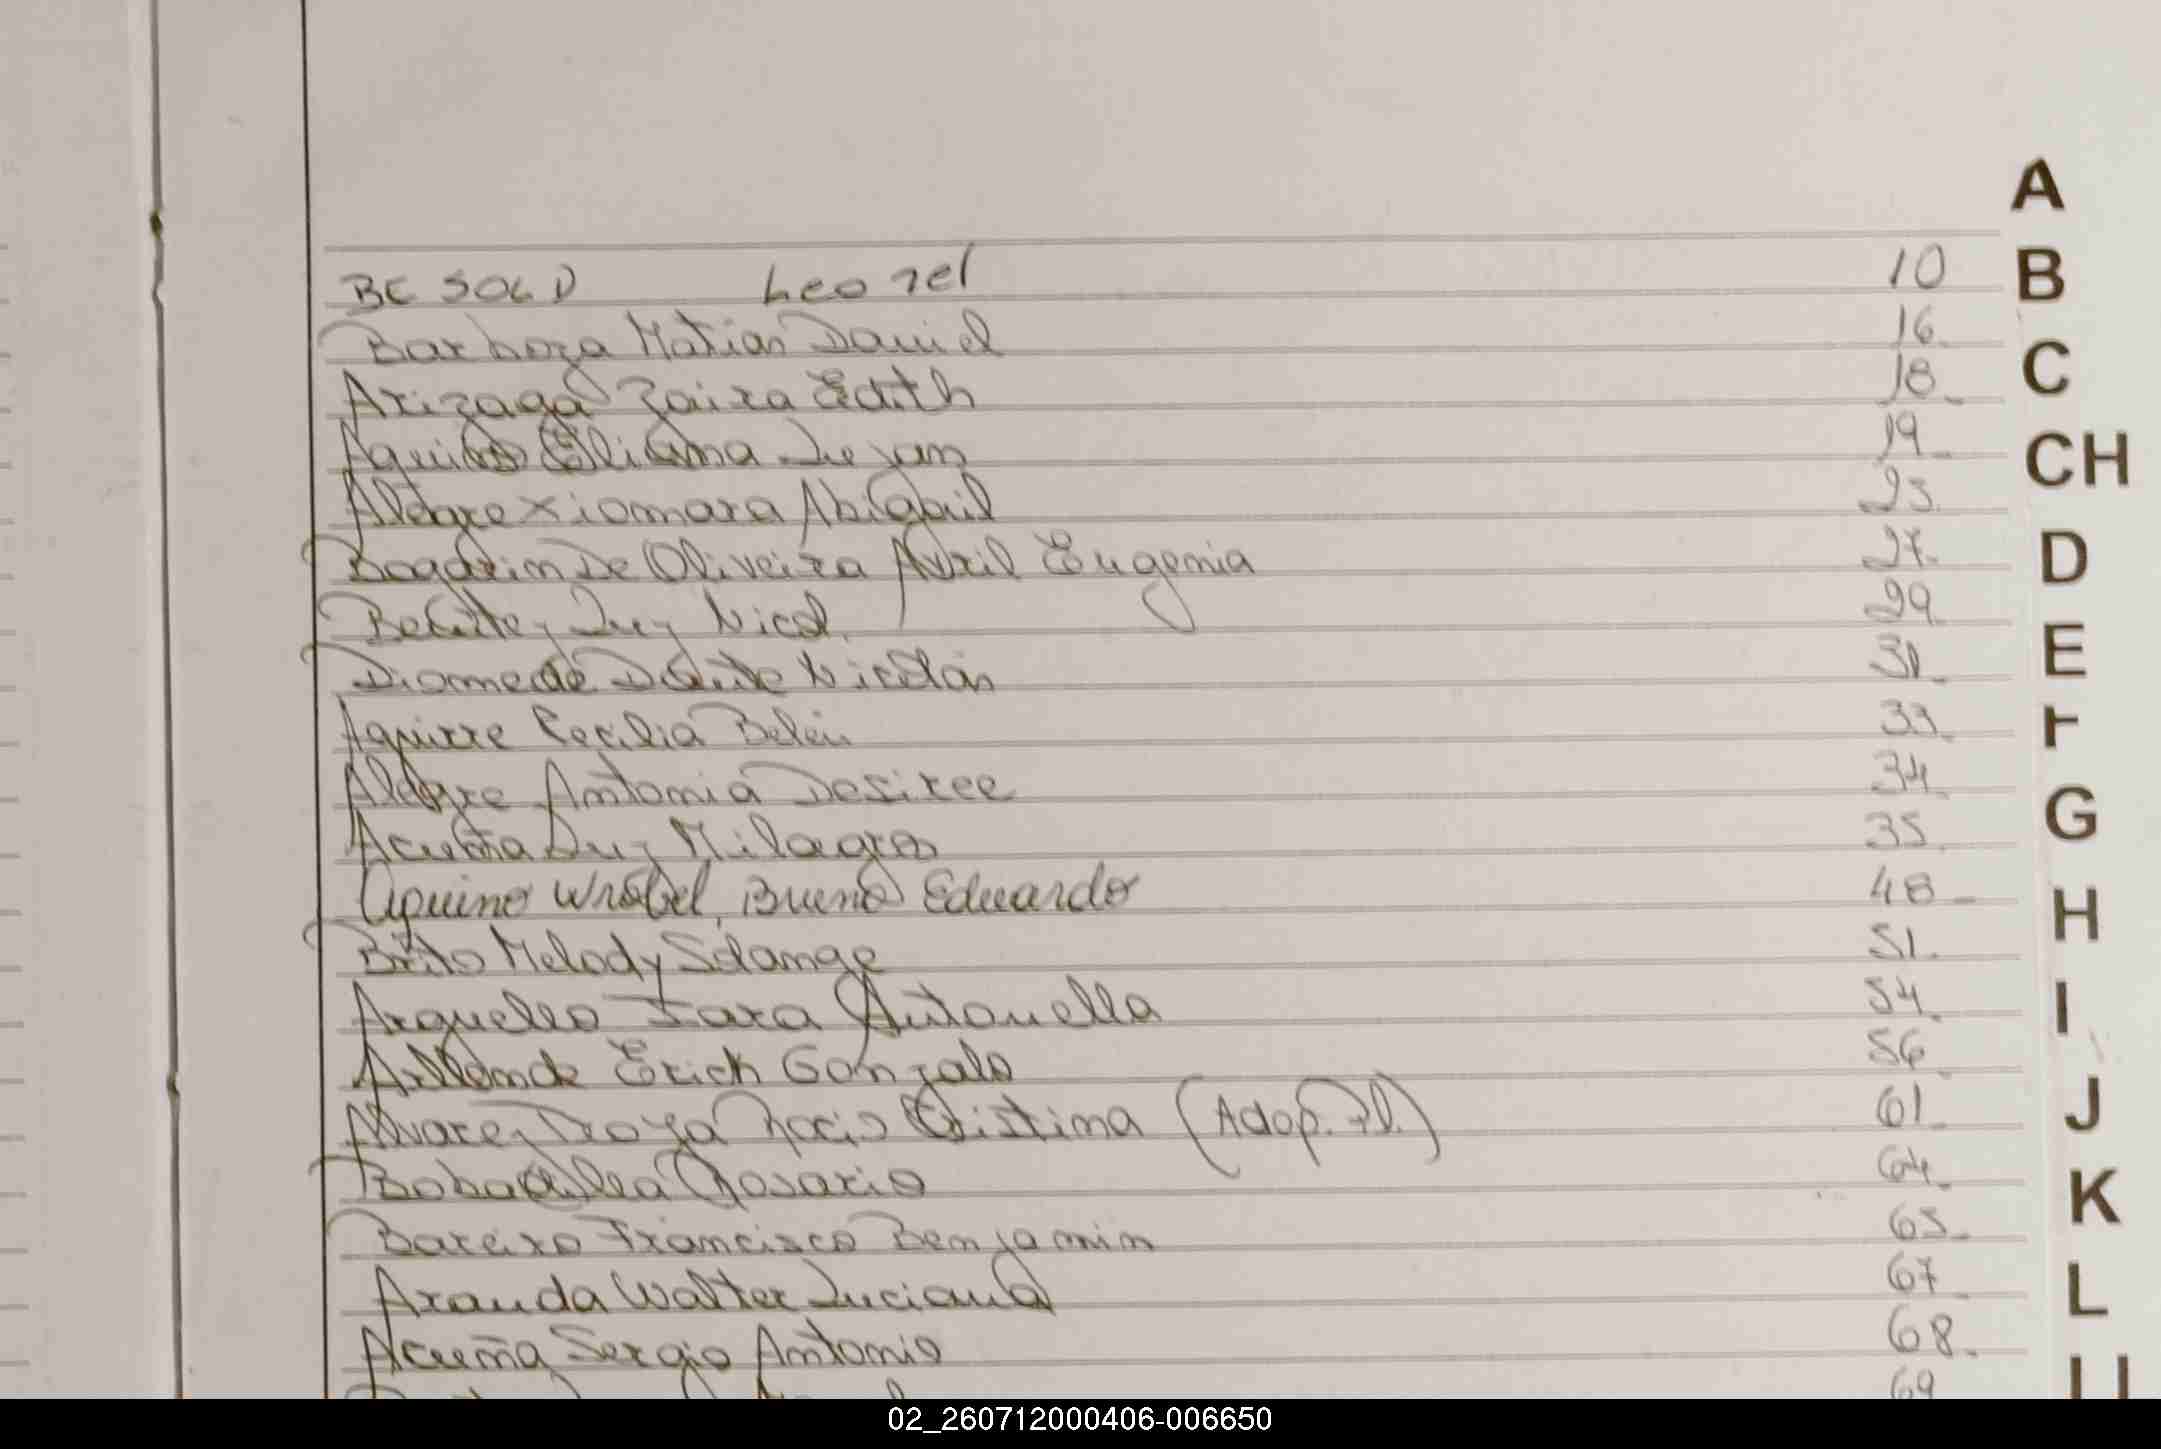 BESOLD Leonel 10
A
B
Barboza Matias Daniel 16.
Arizaga Zaira Edith 18.
C
Aguilar Eliana Luján 19.
CH
Alegre Xiomara Abigail 23.
Bogarin De Oliveira Avril Eugenia 27.
D
Benitez Luz Nicol. 29
E
Diomede Dante Nicolás 31.
Aguirre Cecilia Belén 33.
F
Alegre Antonia Desiree 34.
G
Acuña Luz Milagros 35.
Aquino Wrobel, Bruno Eduardo 48.
H
Brito Melody Solange 51.
Arguello Sara Antonella 54.
I
Allende Erich Gonzalo 56.
Alvarez Troya Rocio Cristina (Adop. Pl.) 61.
J
Bobadilla Rosario 64.
K
Bareiro Francisco Benjamin 65.
Aranda Walter Luciano 67.
L
Acuña Sergio Antonio 68.
69
02_260712000406-006650